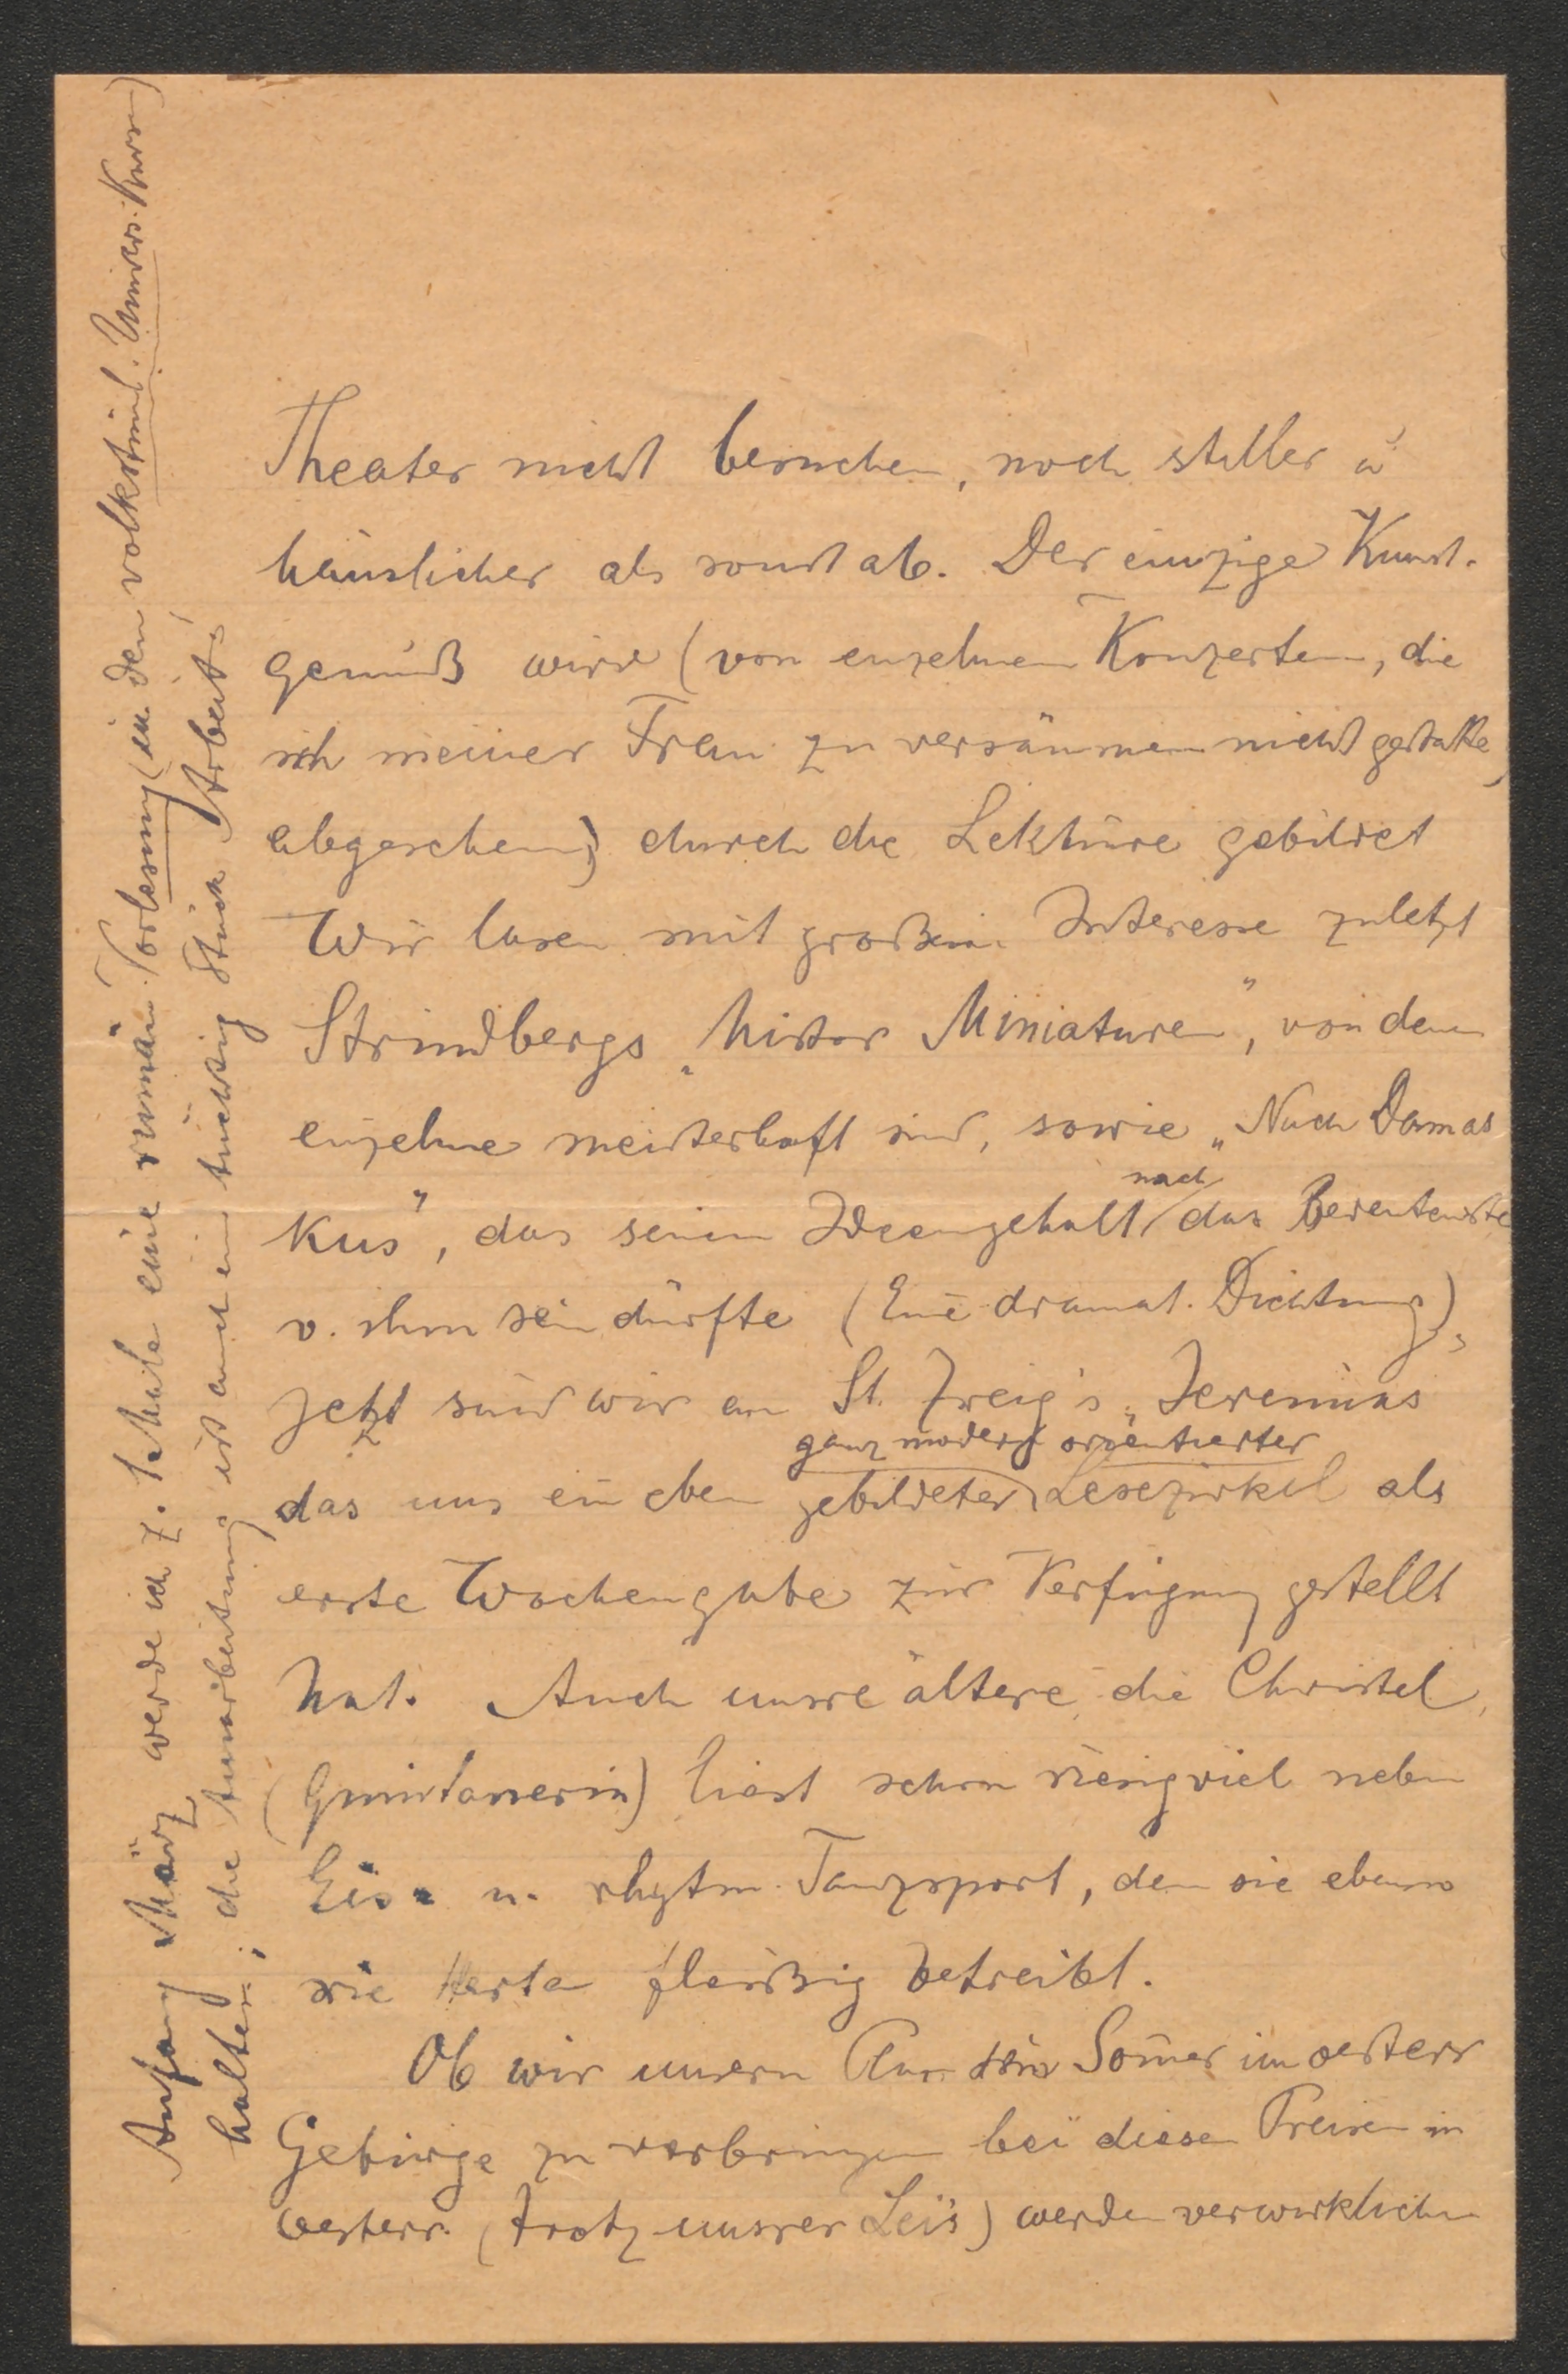 Theater nicht besuchen, noch stiller u
häuslicher als sonst ab. Der einzige Kunst-
genuß wird (von einzelnen Konzerten, die
ich meiner Frau zu versäumen nicht gestatte,
abgesehen) durch die Lektüre gebildet
Wir lasen mit großem Interesse zuletzt
Strindbergs „histor Miniaturen", von denen
einzelne meisterhaft sind, sowie „Nach Damas
kus", das seinem Ideengehalt nach das Bedeutendste
v. ihm sein dürfte (Eine dramat. Dichtung),
jetzt sind wir an St. Zweig's „Jeremias
das uns ein eben gebildeter ganz modern orientierter Lesezirkel als
erste Wochengabe zur Verfügung gestellt
hat. Auch unsre ältere, die Christel,
(Quintanerin) liest schon riesig viel neben
Eis- u. rhytm. Tanzsport, den sie ebenso
wie Herta fleißig betreibt.
Ob wir unsern Plan den Som̄er im oesterr
Gebirge zu verbringen bei diesen Preisen in
Oesterr. (trotz unsrer Lei's) werden verwirklichen
Anfang März werde ich z. 1. Male eine rumän. Vorlesung (in den volkstüml. Univers. Kursen)
halten; die Ausarbeitung ist auch ein tüchtig Stück Arbeit!